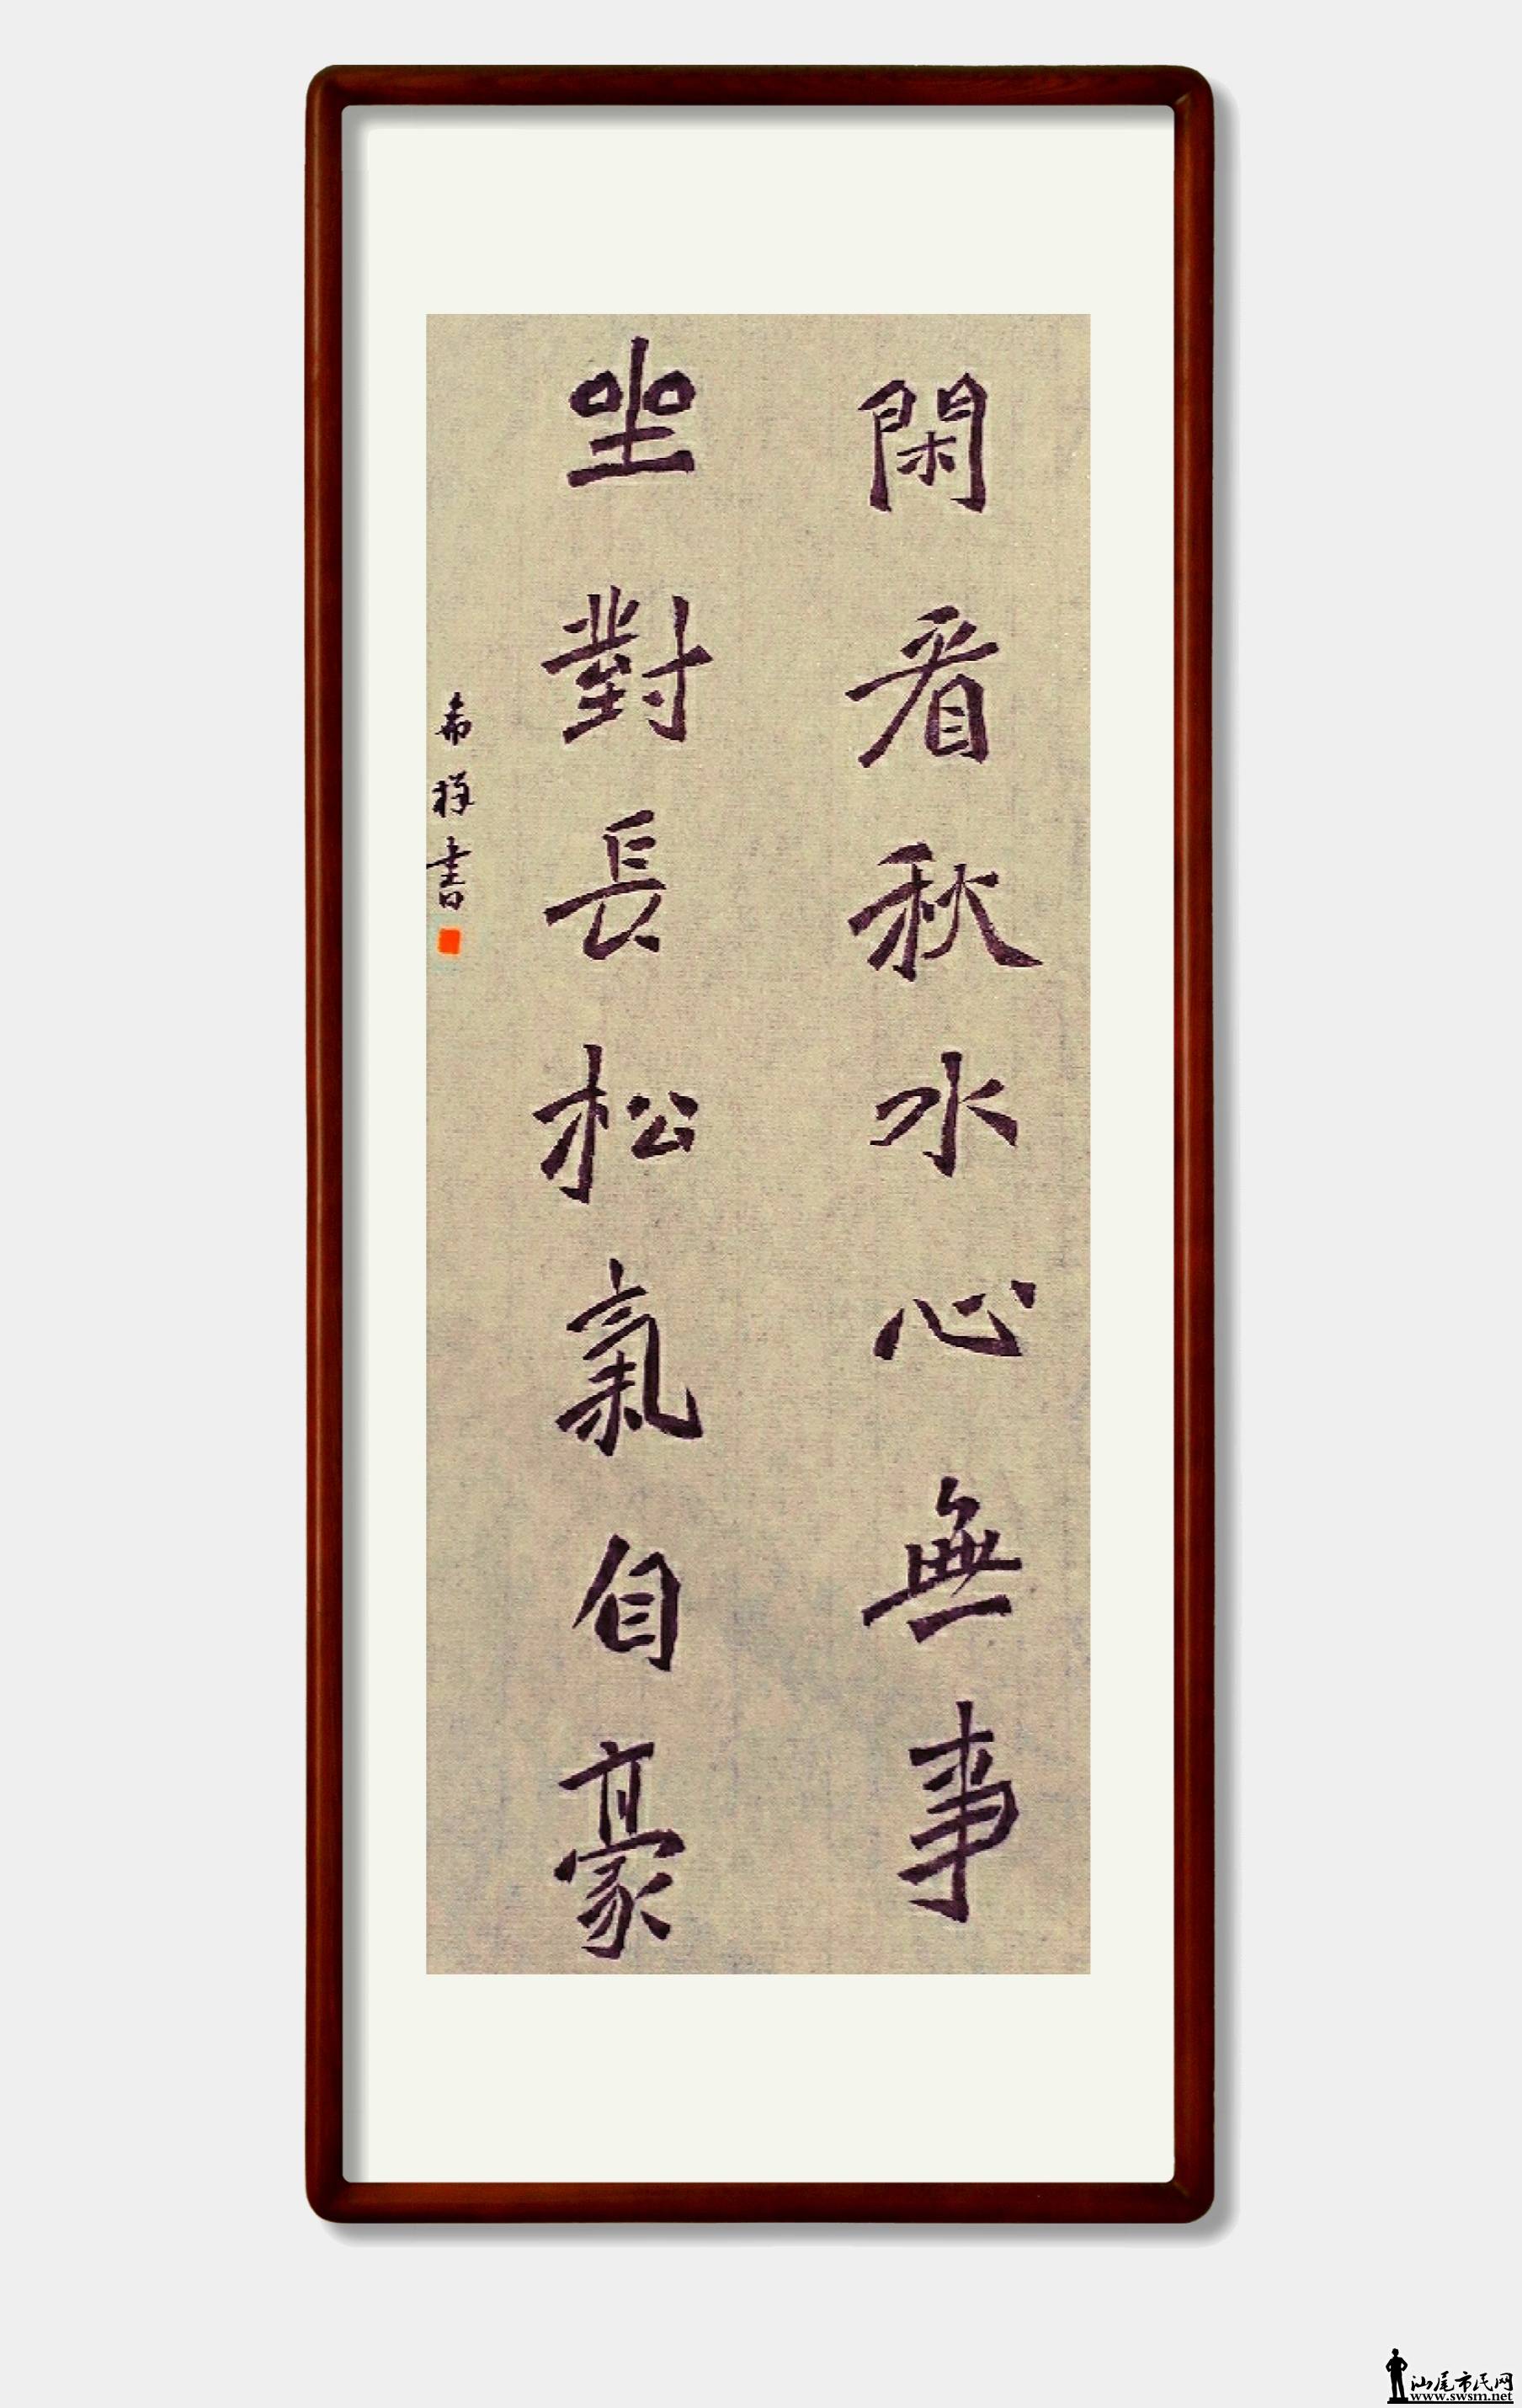 閑看秋水心無事
坐對長松氣自豪
希祥書
汕尾市民网
www.swsm.net